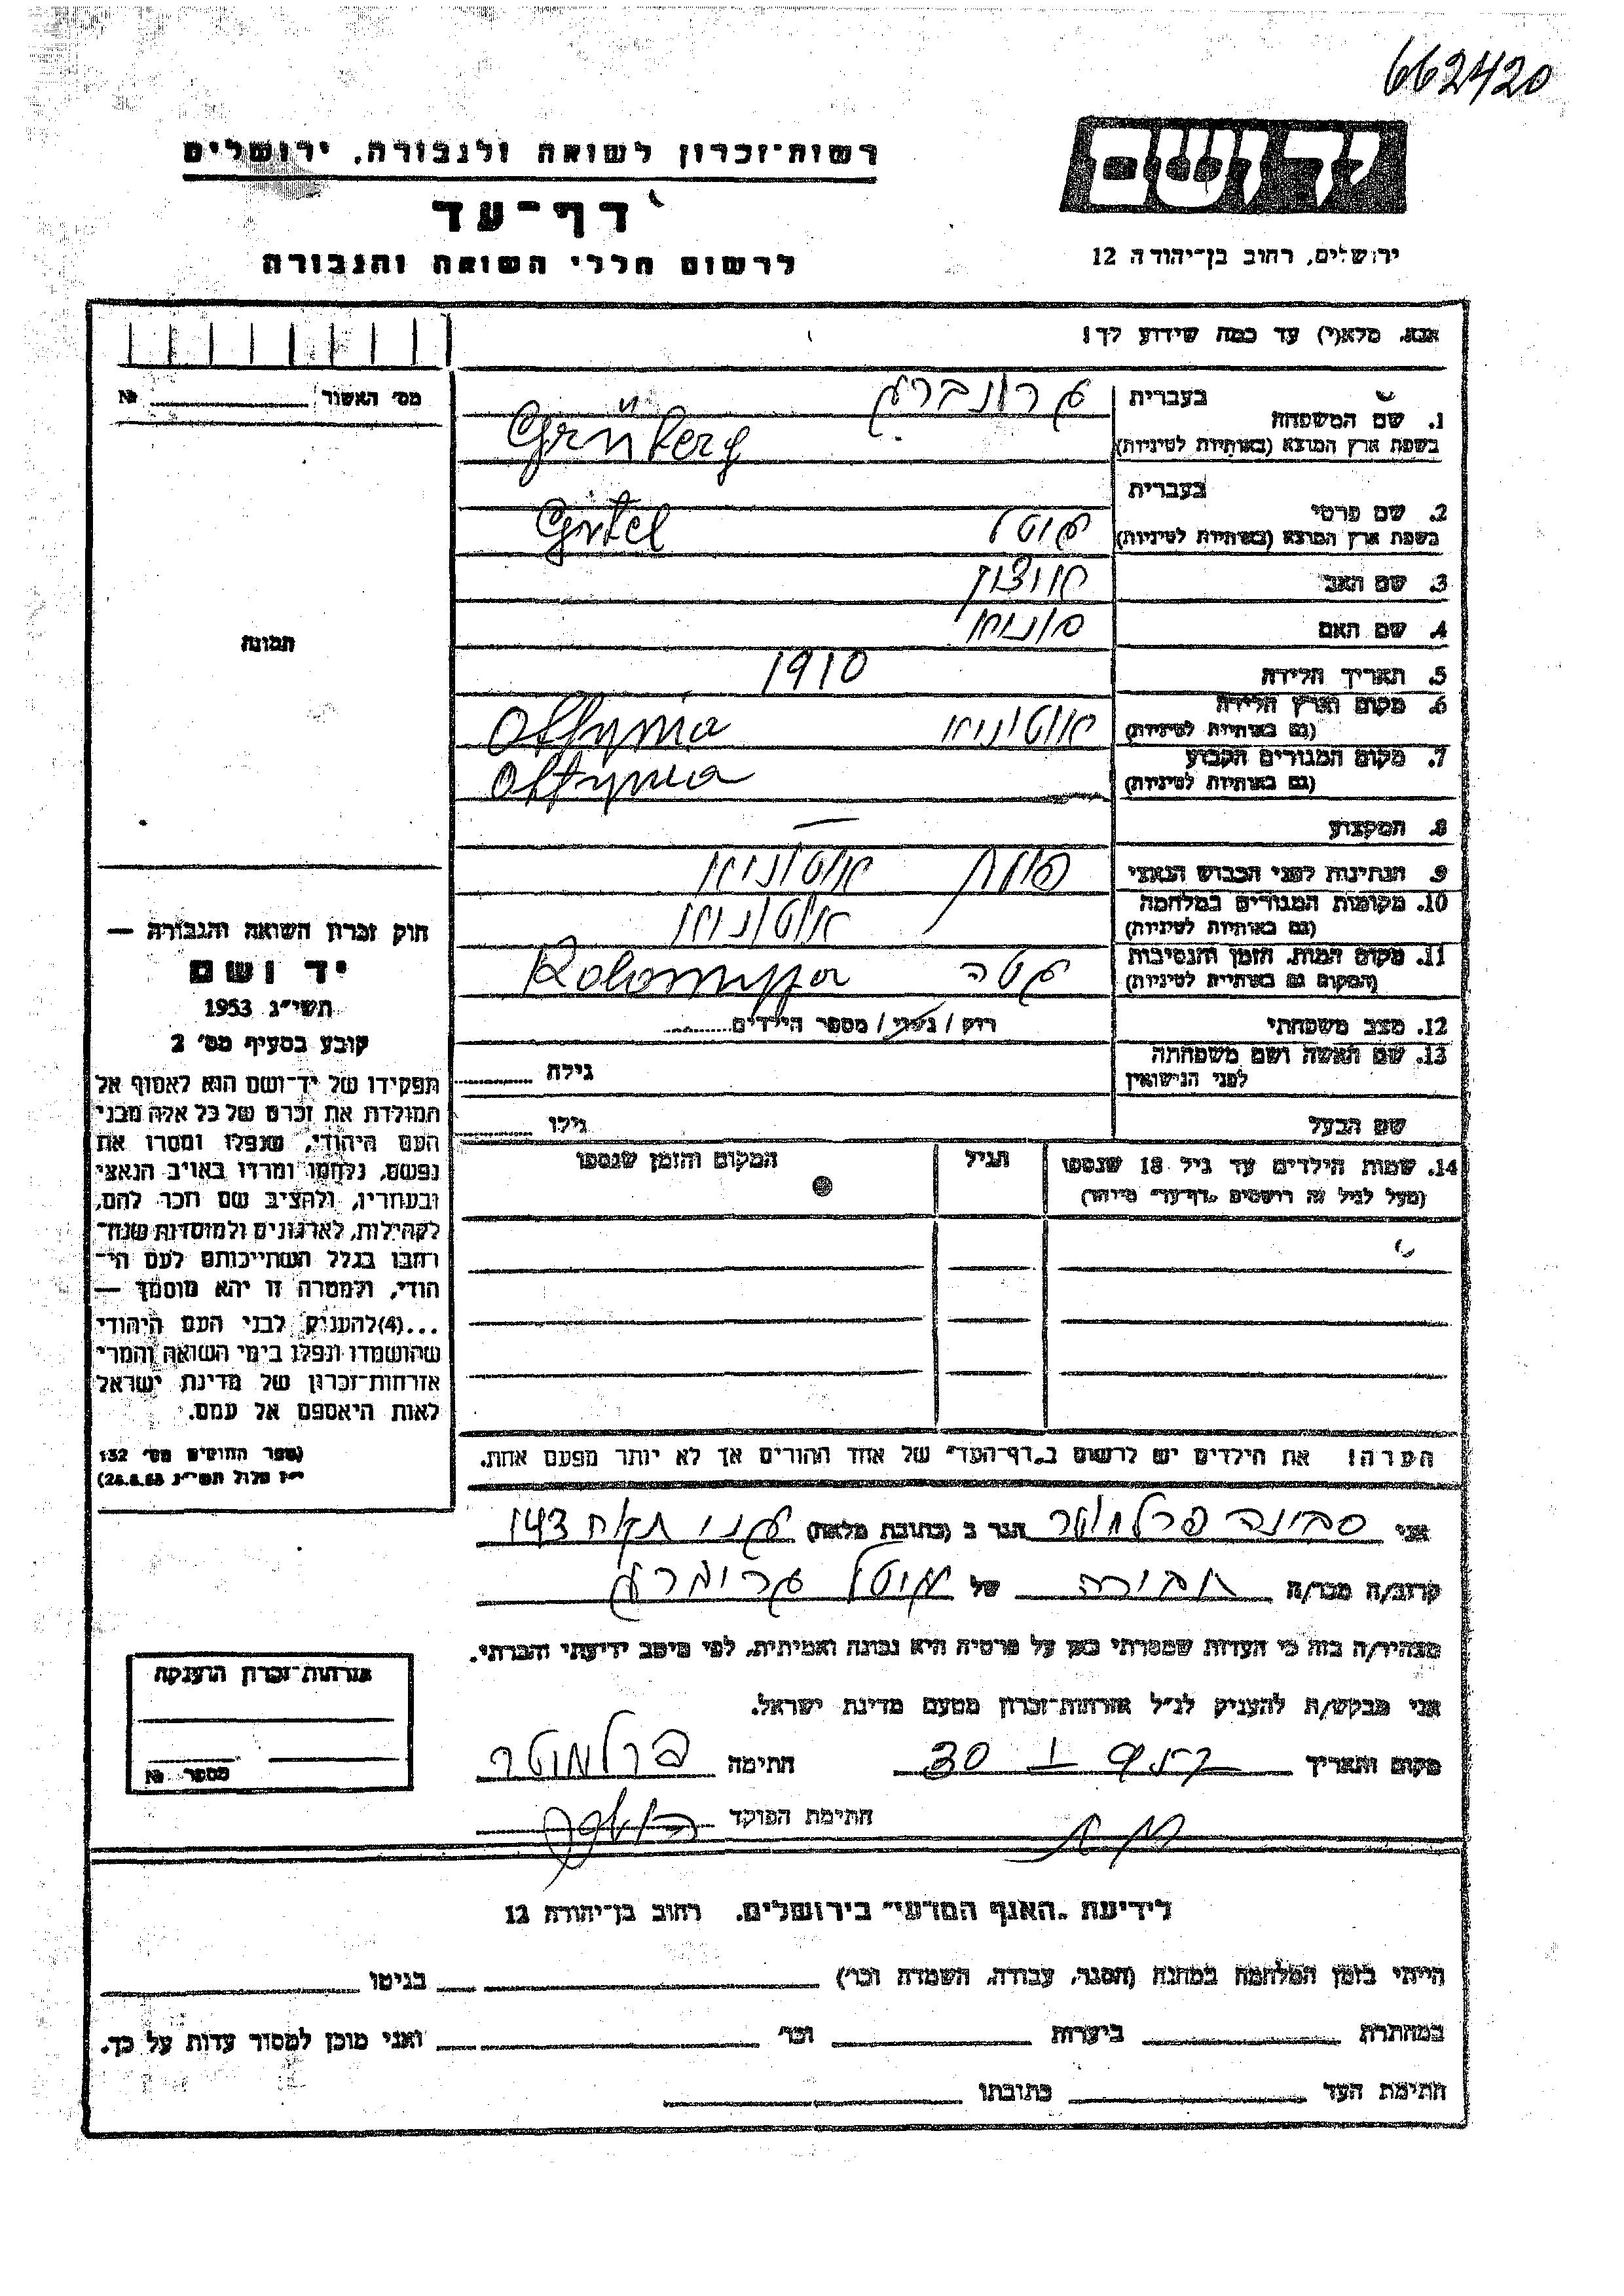 662420
יד ושם
רשות־זכרון לשואה ולגבורה, ירושלים
דף־עד
לרשום חללי השואה והגבורה
ירושלים, רחוב בן־יהודה 12
אנא, מלא(י) עד כמה שידוע לך!
מס' האשור № 
1. שם המשפחה בעברית גרונברג
בשפת ארץ המוצא (באותיות לטיניות) Grünberg
2. שם פרטי בעברית
בשפת ארץ המוצא (באותיות לטיניות) גיטל Gitel
3. שם האב
4. שם האם
5. תאריך הלידה 1910
6. מקום וארץ הלידה
(גם באותיות לטיניות) Ottynia
7. מקום המגורים הקבוע
(גם באותיות לטיניות) Ottynia
8. המקצוע —
9. הנתינות לפני הכבוש הנאצי
10. מקומות המגורים במלחמה
(גם באותיות לטיניות)
11. מקום המות, הזמן והנסיבות
(המקום גם באותיות לטיניות) Kolomyja
12. מצב משפחתי רווק / נשוי / מספר הילדים
13. שם האשה ושם משפחתה
לפני הנישואין גילה
שם הבעל גילו
14. שמות הילדים עד גיל 18 שנספו הגיל המקום והזמן שנספו
(מעל לגיל זה רושמים "דף־עד" מיוחד)
הערה! את הילדים יש לרשום ב"דף־העד" של אחד ההורים אך לא יותר מפעם אחת.
תמונה
חוק זכרון השואה והגבורה —
יד ושם
תשי"ג 1953
קובע בסעיף מס' 2
תפקידו של יד־ושם הוא לאסוף אל
המולדת את זכרם של כל אלה מבני
העם היהודי, שנפלו ומסרו את
נפשם, נלחמו ומרדו באויב הנאצי
ובעוזריו, ולהציב שם וזכר להם,
לקהילות, לארגונים ולמוסדות שנח־
רבו בגלל השתייכותם לעם הי־
הודי, ולמטרה זו יהא מוסמך —
...(4) להעניק לבני העם היהודי
שהושמדו ונפלו בימי השואה והמרי
אזרחות־זכרון של מדינת ישראל
לאות היאספם אל עמם.
(ספר החוקים מס' 132
אני סבינה פרלמוטר הגר ב (כתובת מלאה) 143
קרוב/ה מכר/ה חבירה של גיטל גרינברג
מצהיר/ה בזה כי העדות שמסרתי כאן על פרטיה היא נכונה ואמיתית, לפי מיטב ידיעתי והכרתי.
אני מבקש/ת להעניק לנ"ל אזרחות־זכרון מטעם מדינת ישראל.
מקום ותאריך 30 חתימה פרלמוטר
חתימת הפוקד
אזרחות־זכרון הוענקה
מספר №
לידיעת "האגף המדעי" בירושלים, רחוב בן־יהודה 12
הייתי בזמן המלחמה במחנה (הסגר, עבודה, השמדה וכו') בגיטו
במחתרת ביערות וכו' ואני מוכן למסור עדות על כך.
חתימת העד כתובתו